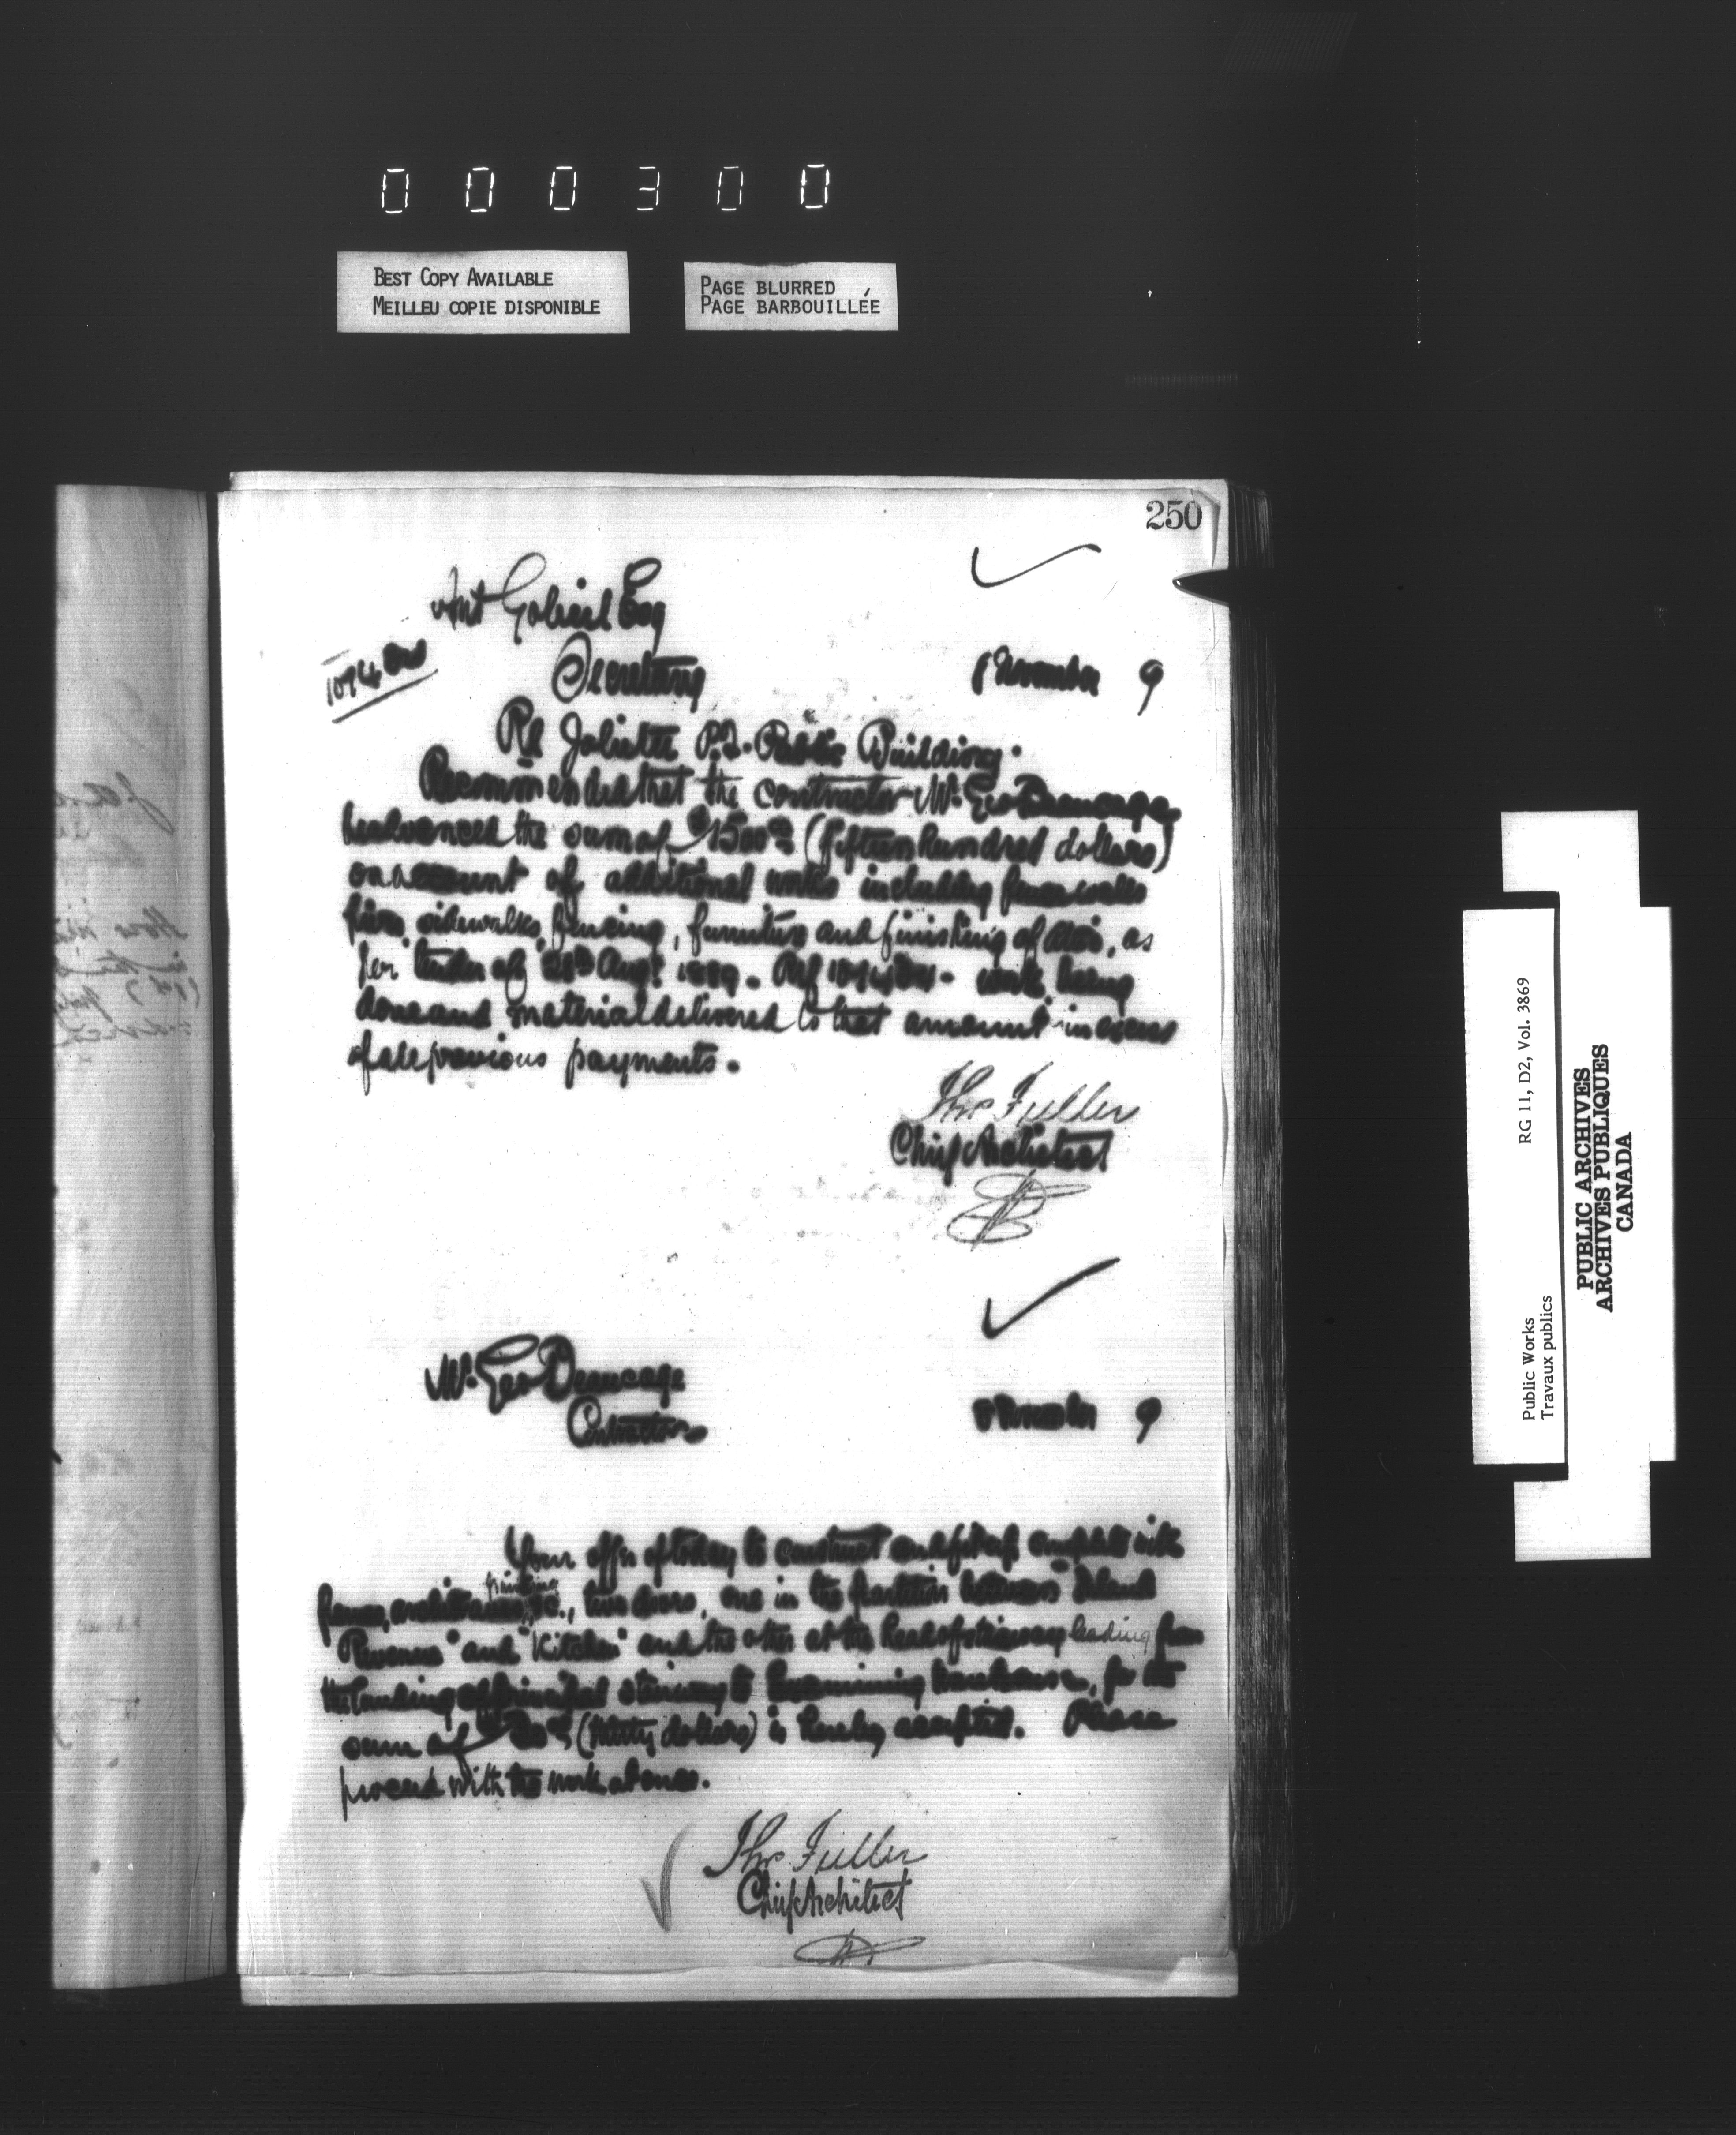 000300
BEST COPY AVAILABLE
MEILLEU COPIE DISPONIBLE
PAGE BLURRED
PAGE BARBOUILLÉE
250
Ant Gobeil Esq
Secretary
November 9
Re Joliette P.Q. Public Building.
Recommended that the contractor Mr. Geo Beaucage
be advanced the sum of $1500 00 (fifteen hundred dollars)
on account of additional works including
sidewalks, fencing, furniture and finishing of attic, as
per tender of Augt 1889. Ref work being
done and material delivered to that amount in excess
of all previous payments.
Thos Fuller
Chief Architect
Mr. Geo Beaucage
Contractor
November 9
Your offer of today to construct and fit up complete with
painting
frames, architraves, &c., two doors, one in the partition between "Inland
Revenue" and "Kitchen" and the other at the head of stairway leading from
the landing of principal stairway to Examining warehouse, for the
sum of $30 00 (thirty dollars) is hereby accepted. Please
proceed with the work at once.
Thos Fuller
Chief Architect
Public Works
Travaux publics
RG 11, D2, Vol. 3869
PUBLIC ARCHIVES
ARCHIVES PUBLIQUES
CANADA